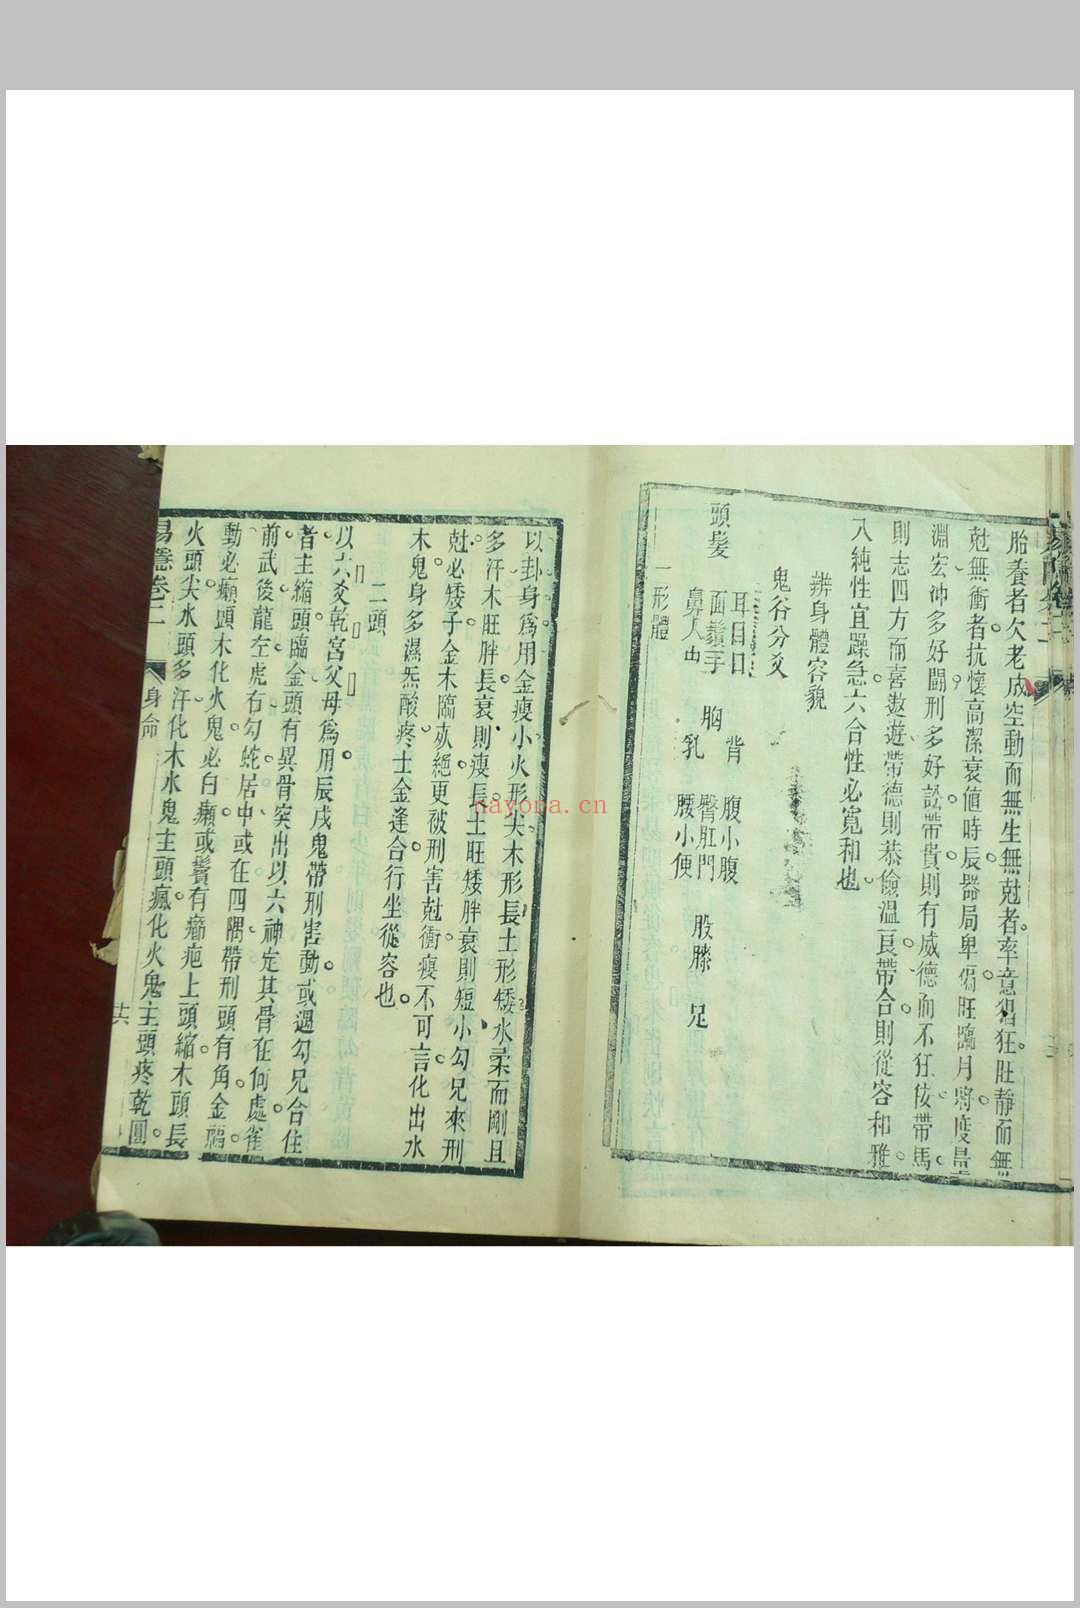 胎養者欠老成空動而無生無尅者率意猖狂旺靜而無
尅無衝者抗懷高潔衰値時辰器局卑偏旺臨月將度量
淵宏冲多好鬪刑多好訟帶貴則有威德而不狂傲帶馬
則志四方而喜遨遊帶德則恭儉溫良帶合則從容和雅
八純性宜躁急六合性必寬和也
辨身體容貌
鬼谷分爻
耳目口 背 腹小腹
頭髮 面鬚手 胸 臀肛門 股膝 足
鼻人由 乳 腰小便
一形體
以卦身爲用金瘦小火形尖木形長土形矮水柔而剛且
多汗木旺胖長衰則瘦長土旺矮胖衰則短小勾兄來刑
尅必矮子金木臨灰絕更被刑害尅衝瘦不可言化出水
木鬼身多濕炁酸疼土金逢合行坐從容也
二頭
以六爻乾宮父母爲用辰戌鬼帶刑害動或遇勾兄合住
者主縮頭臨金頭有異骨突出以六神定其骨在何處雀
前武後龍左虎右勾蛇居中或在四隅帶刑頭有角金福
動必癩頭木化火鬼必白癩或鬢有癤疤上頭縮木頭長
火頭尖水頭多汗化木水鬼主頭瘋化火鬼主頭疼乾圓
易隱卷二
身命
nayona.cn